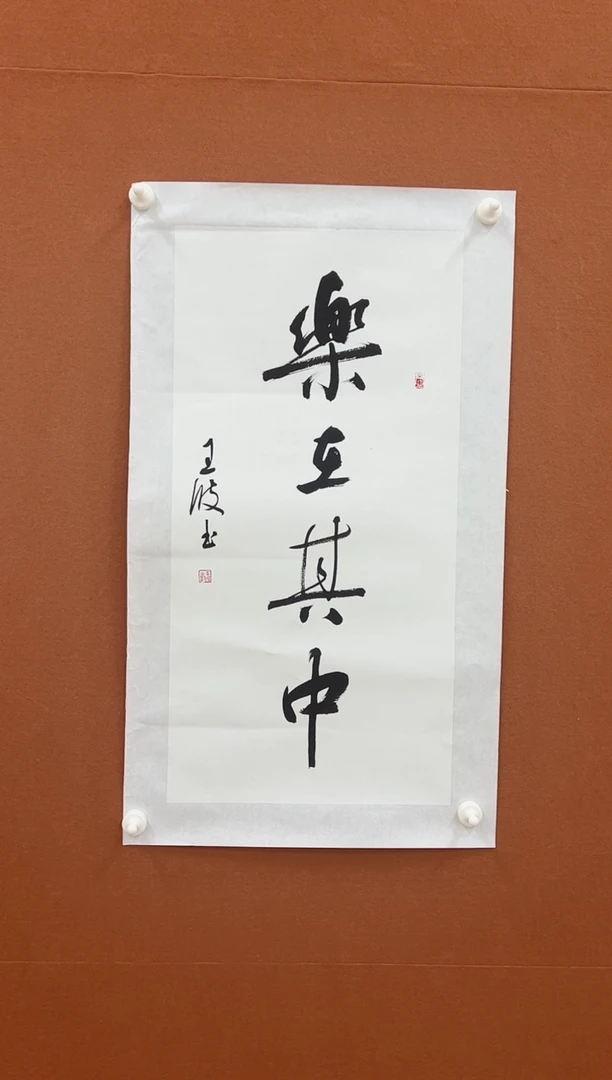 樂在其中
王波书